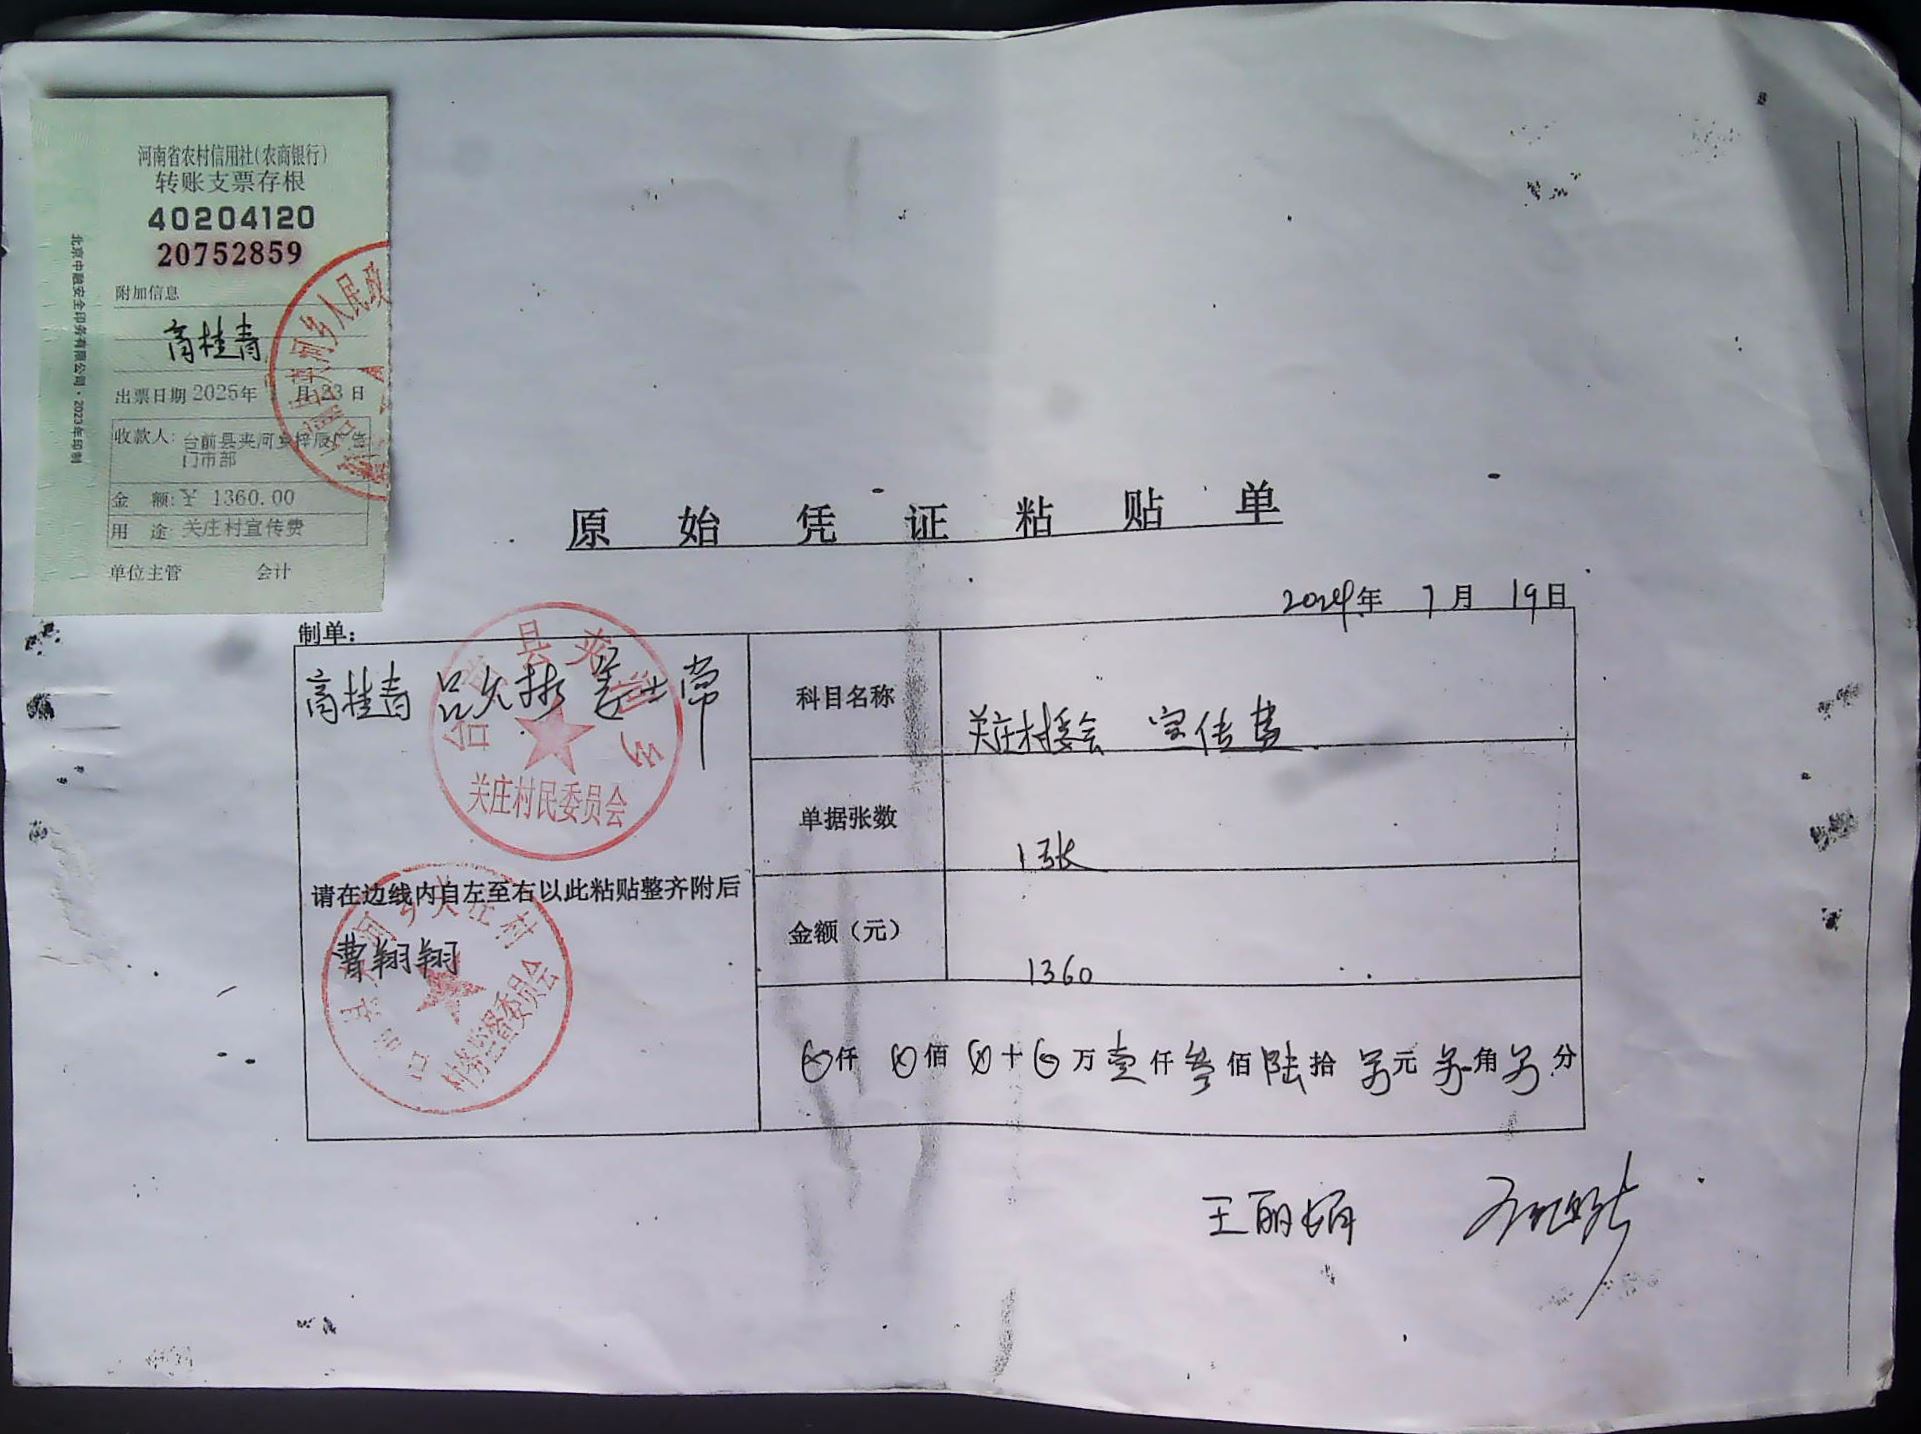 河南省农村信用社(农商银行)
转账支票存根
40204120
20752859
附加信息
高桂青
出票日期 2025年 月23日
收款人: 台前县夹河乡梓辰
门市部
金 额: ¥ 1360.00
用 途: 关庄村宣传费
单位主管 会计
北京中融安全印务有限公司·2023年印制
河乡人民政
原始凭证粘贴单
2024年 7月 19日
制单:
高桂青 吕久彬 姜士常
台前县夹河乡
关庄村民委员会
科目名称
关庄村委会 宣传费
单据张数
1张
请在边线内自左至右以此粘贴整齐附后
曹翔翔
台前县夹河乡关庄村
村务监督委员会
金额(元)
1360
仟 佰 十 万 壹仟 叁佰 陆拾 零元 零角 零分
王丽娟